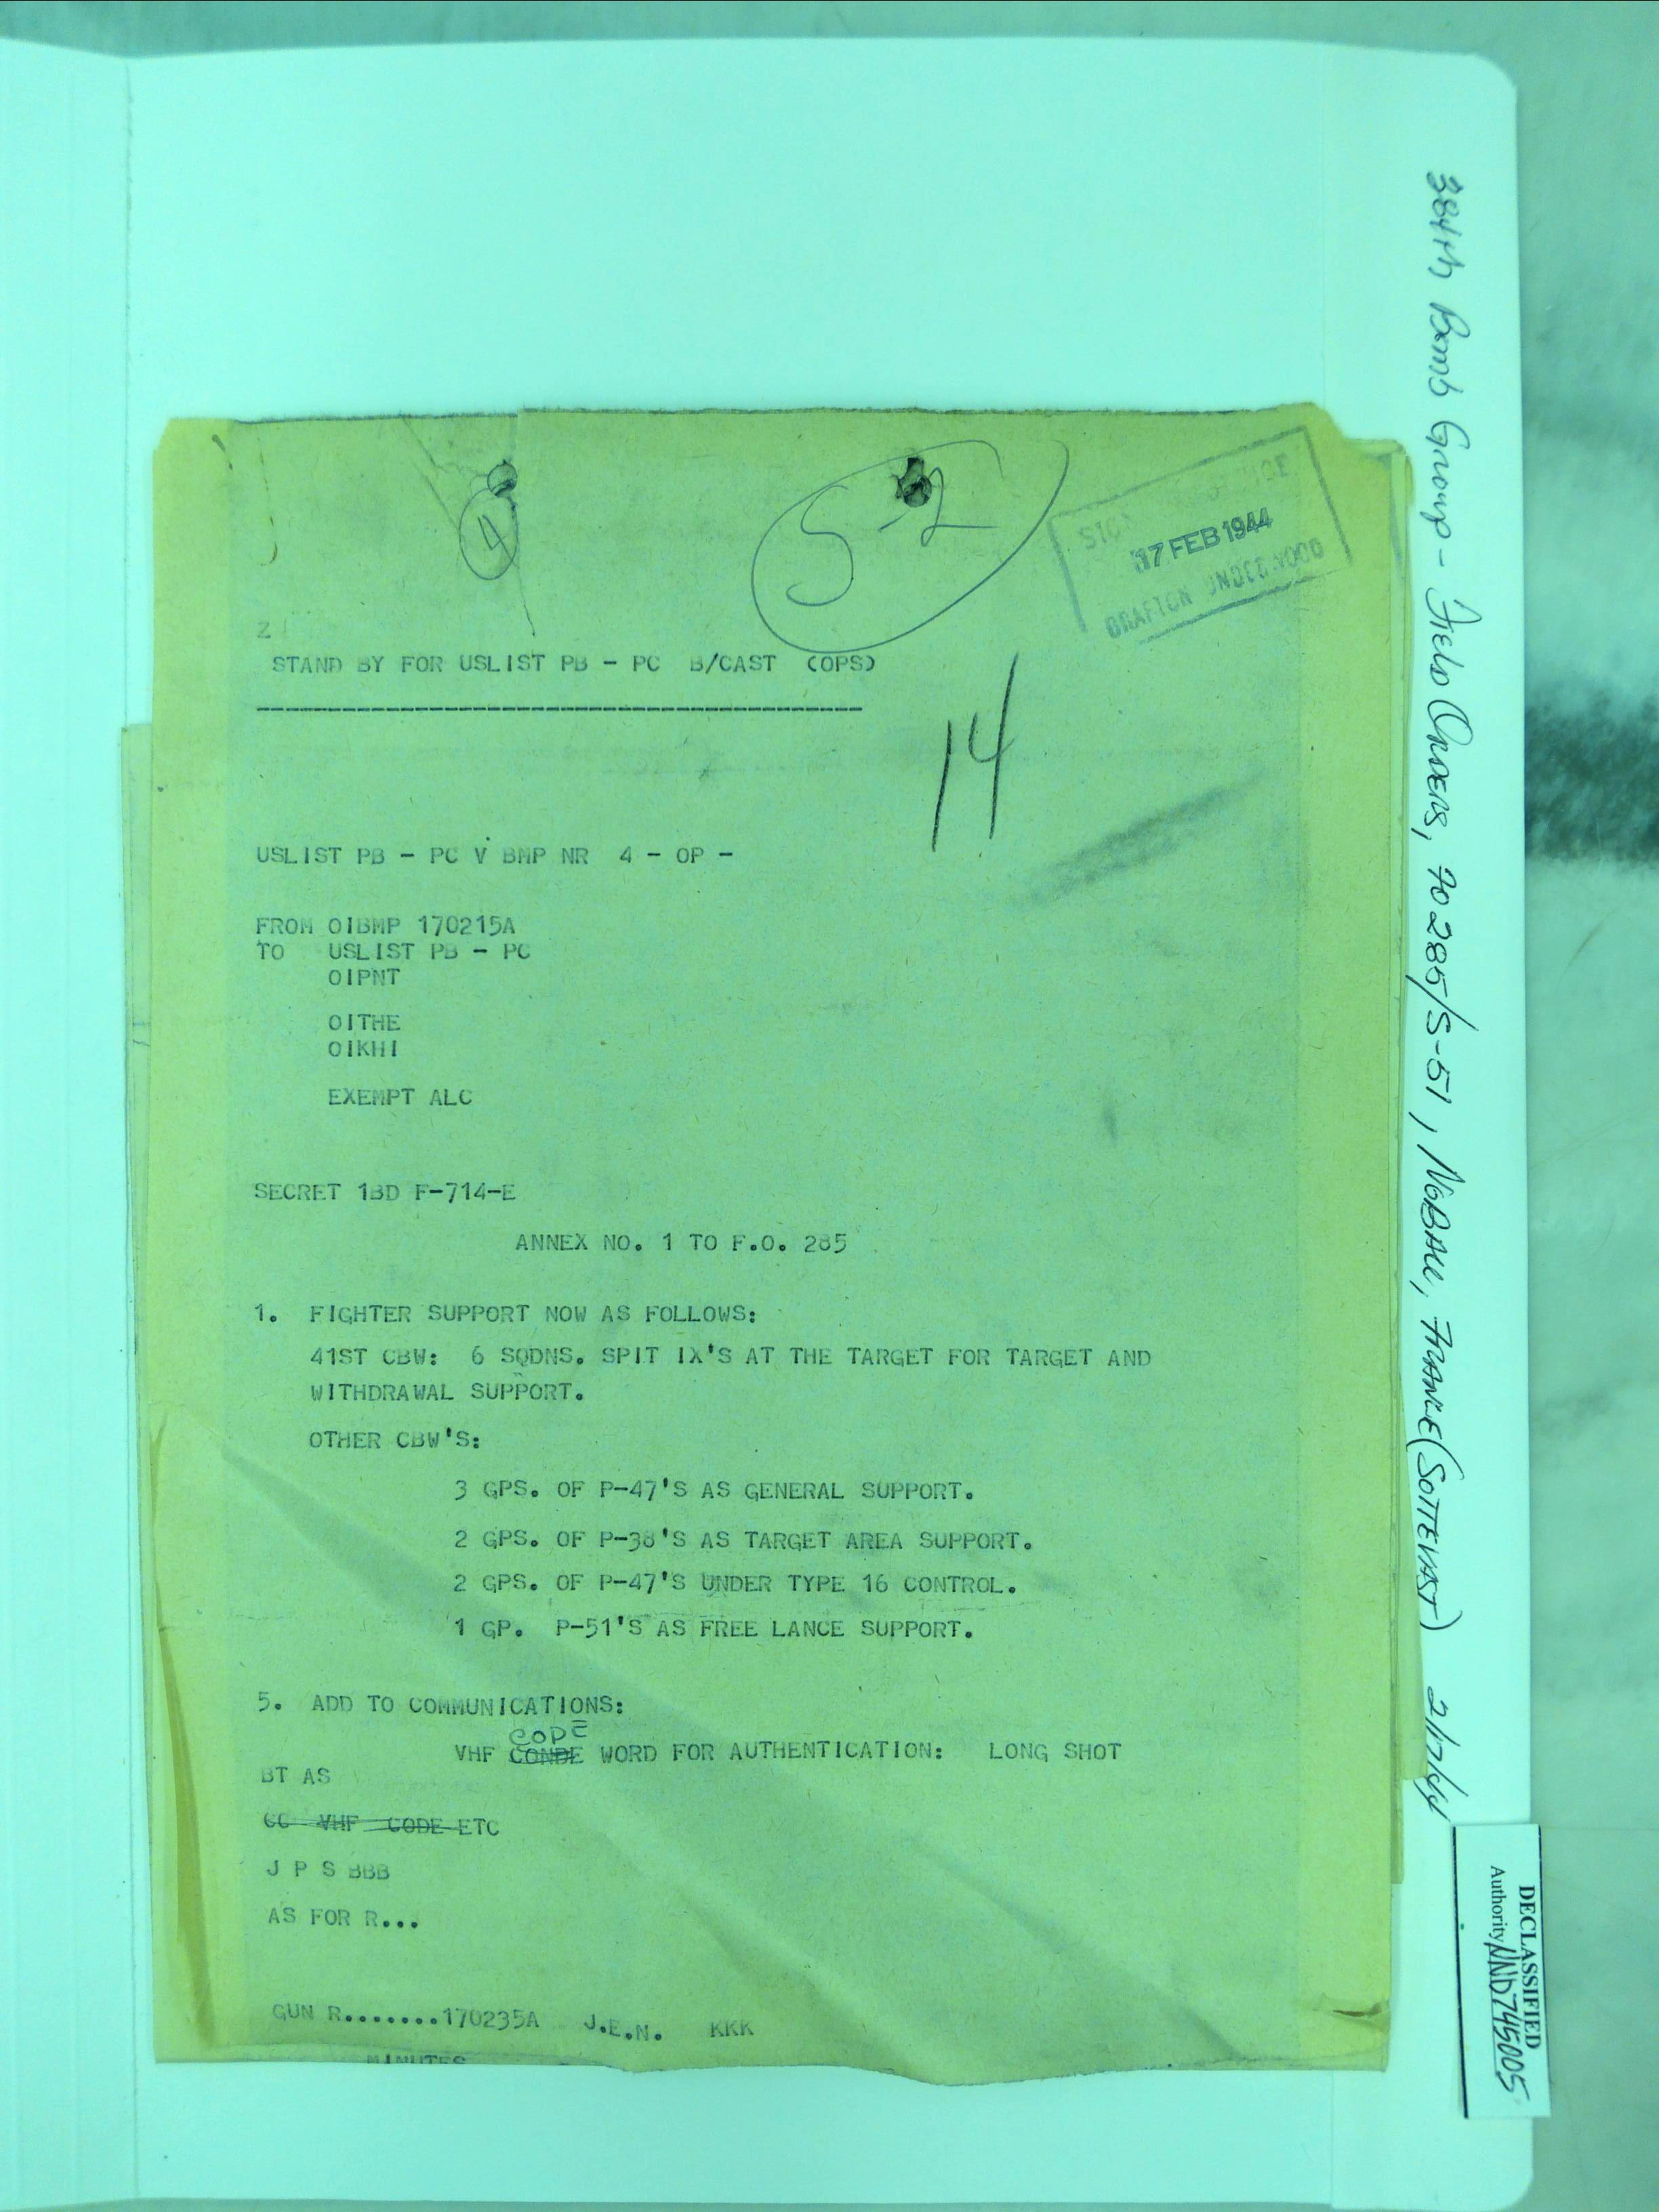 4
S-2
17 FEB 1944
GRAFTON UNDERWOOD
Z
STAND BY FOR USLIST PB - PC B/CAST (OPS)
------------------------------------------
14
USLIST PB - PC V BMP NR 4 - OP -
FROM OIBMP 170215A
TO USLIST PB - PC
OIPNT
OITHE
OIKHI
EXEMPT ALC
SECRET 1BD F-714-E
ANNEX NO. 1 TO F.O. 285
1. FIGHTER SUPPORT NOW AS FOLLOWS:
41ST CBW: 6 SQDNS. SPIT IX'S AT THE TARGET FOR TARGET AND
WITHDRAWAL SUPPORT.
OTHER CBW'S:
3 GPS. OF P-47'S AS GENERAL SUPPORT.
2 GPS. OF P-38'S AS TARGET AREA SUPPORT.
2 GPS. OF P-47'S UNDER TYPE 16 CONTROL.
1 GP. P-51'S AS FREE LANCE SUPPORT.
5. ADD TO COMMUNICATIONS:
CODE
VHF CONDE WORD FOR AUTHENTICATION: LONG SHOT
BT AS
CC VHF CODE ETC
J P S BBB
AS FOR R...
GUN R.......170235A J.E.N. KKK
MINUTES
384th Bomb Group - Field Orders, FO 285/S-51, NOBALL, FRANCE (SOTTEVAST) 2/17/44
DECLASSIFIED
Authority NND745005